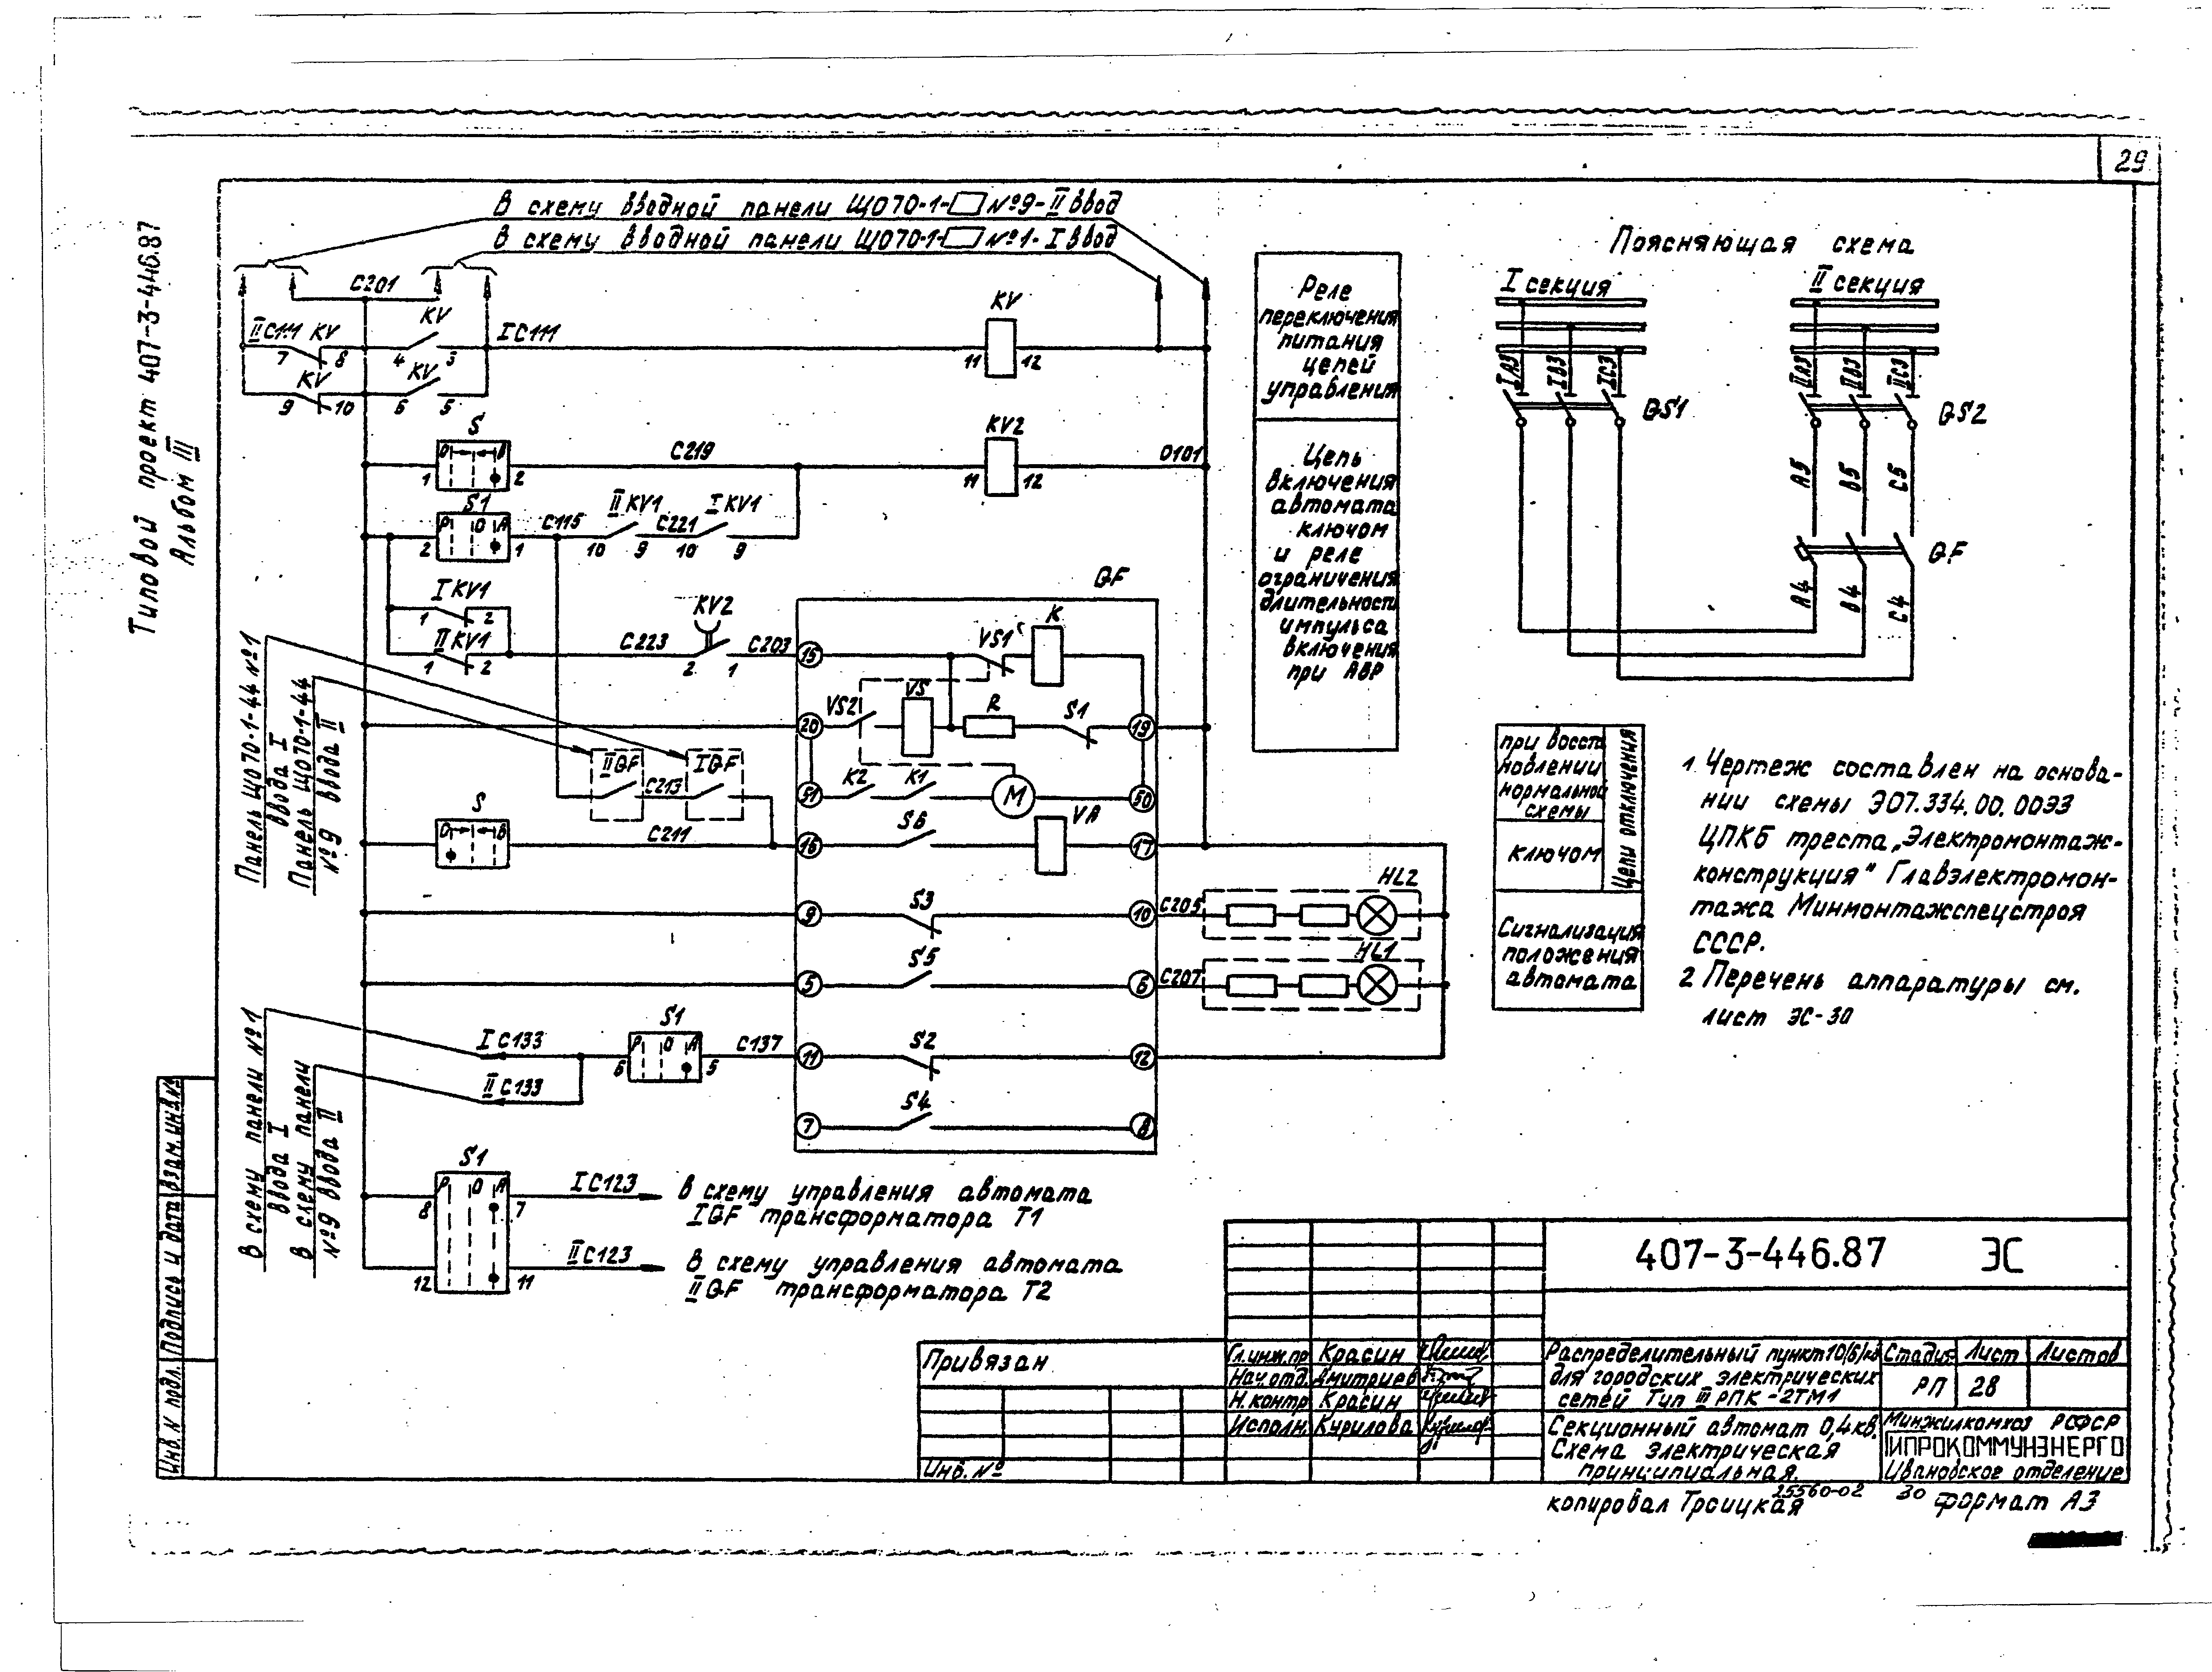 29
Типовой проект 407-3-446.87
Альбом III
В схему вводной панели ЩО70-1-□ №9-II ввод
В схему вводной панели ЩО70-1-□ №1-I ввод
С201
IIС111 KV
KV
IС111
KV
7 8 4 3 11 12
KV KV
9 10 6 5
S
0 В
1 2
С219
KV2
11 12
0101
S1
Р 0 А
2 1
С115
IIKV1
С221
IKV1
10 9 10 9
IKV1
1 2
IIKV1
1 2
С223
KV2
2 1
С203
QF
15
VS1
K
20
VS2
VS
R
S1
19
IIQF
С213
IQF
51
K2
K1
M
50
S
0 В
С211
16
S6
VA
17
9
S3
10
С205
HL2
5
S5
6
С207
HL1
IС133
IIС133
S1
Р 0 А
6 5
С137
11
S2
12
7
S4
8
S1
Р 0 А
8 7
12 11
IС123
В схему управления автомата
IQF трансформатора Т1
IIС123
В схему управления автомата
IIQF трансформатора Т2
Панель ЩО70-1-44 №1
ввода I
Панель ЩО70-1-44
№9 ввода II
В схему панели №1
ввода I
В схему панели
№9 ввода II
Реле
переключения
питания
цепей
управления
Цепь
включения
автомата
ключом
и реле
ограничения
длительности
импульса
включения
при АВР
при восста
новлении
нормальной
схемы
ключом
Цепи отключения
Сигнализация
положения
автомата
Поясняющая схема
I секция
II секция
IА3 IВ3 IС3
IIА3 IIВ3 IIС3
QS1
QS2
А5 В5 С5
QF
А4 В4 С4
1 Чертеж составлен на основа-
нии схемы ЭО7.334.00.00ЭЗ
ЦПКБ треста „Электромонтаж-
конструкция" Главэлектромон-
тажа Минмонтажспецстроя
СССР.
2 Перечень аппаратуры см.
лист ЭС-30
Инв. № подл.
Подпись и дата
Взам.инв.№
407-3-446.87 ЭС
Привязан
Инв. №
Гл.инж.пр Красин
Нач.отд. Дмитриев
Н.контр Красин
Исполн. Курилова
Распределительный пункт 10(6)кв
для городских электрических
сетей Тип III РПК-2ТМ1
Стадия Лист Листов
РП 28
Секционный автомат 0,4кв.
Схема электрическая
принципиальная.
Минжилкомхоз РСФСР
ГИПРОКОММУНЭНЕРГО
Ивановское отделение
копировал Троицкая
25560-02 30
формат А3